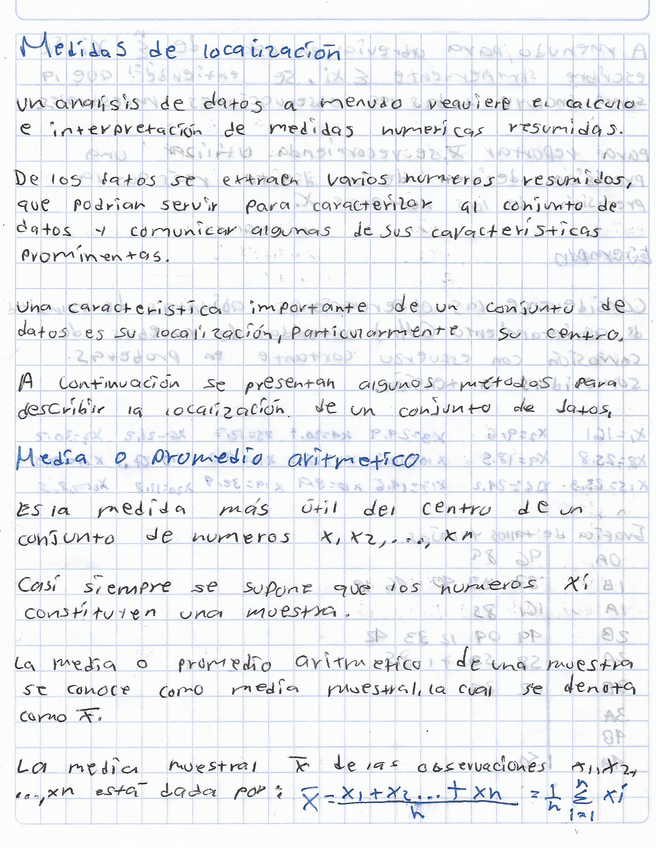 Medidas de localización
un análisis de datos a menudo requiere el calculo
e interpretación de medidas numericas resumidas.
De los datos se extraen varios numeros resumidos,
que podrian servir para caracterizar al conjunto de
datos y comunicar algunas de sus características
prominentas.
una caracteristica importante de un conjunto de
datos es su localización, particularmente su centro.
A continuación se presentan algunos métodos para
describir la localización de un conjunto de datos,
Media o promedio aritmetico
Es la medida más útil del centro de un
conjunto de numeros x, x2,..., xn
Casi siempre se supone que los numeros xi
constituyen una muestra.
La media o promedio aritmetico de una muestra
se conoce como media muestral, la cual se denota
como x̅.
La media muestral x̅ de las observaciones x1, x2,
..., xn está dada por: x̅ = x1 + x2 ... + xn / n = 1/n Σ i=1 n xi